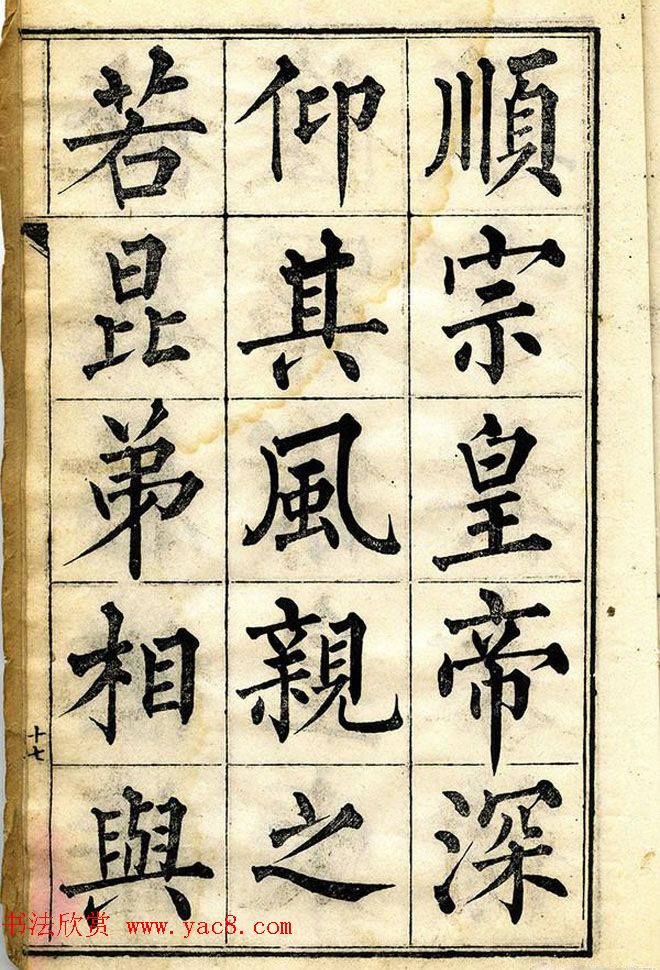 順宗皇帝深
仰其風親之
若昆弟相與
十七
书法欣赏 www.yac8.com